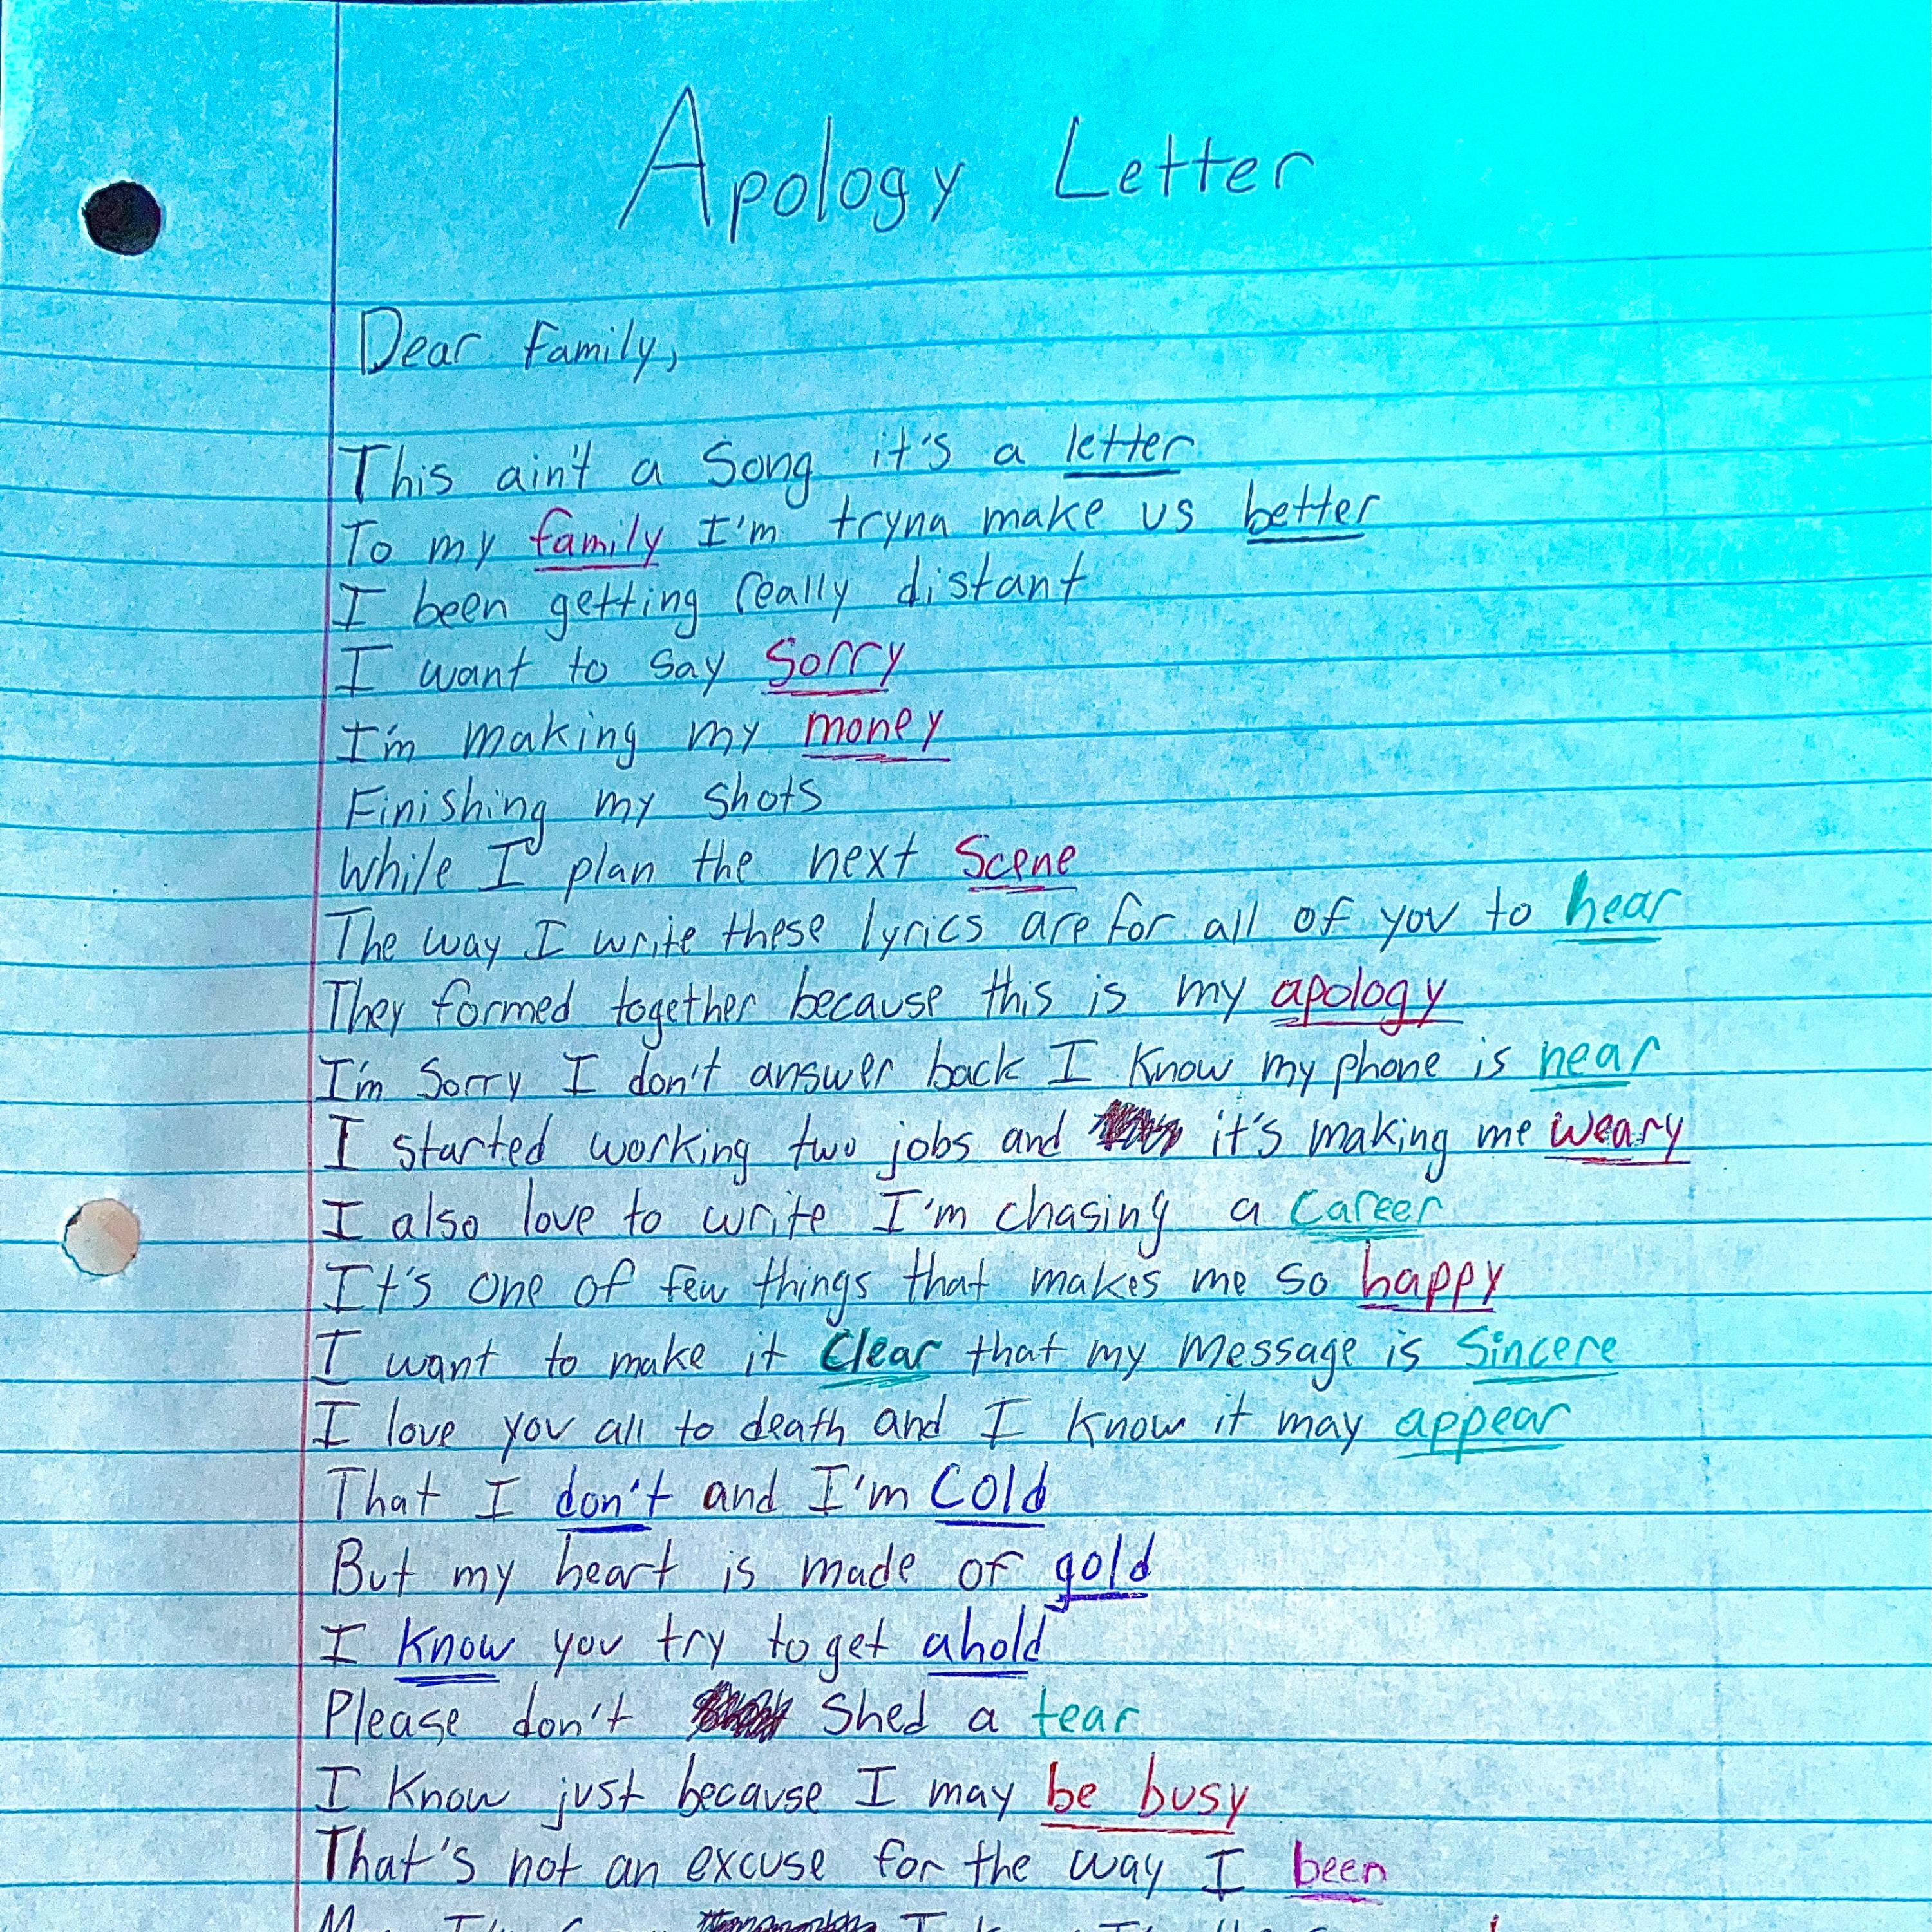 Apology Letter
Dear family,
This ain't a Song it's a letter
To my family I'm tryna make us better
I been getting really distant
I want to say Sorry
I'm making my money
Finishing my shots
While I plan the next Scene
The way I write these lyrics are for all of you to hear
They formed together because this is my apology
I'm Sorry I don't answer back I know my phone is near
I started working two jobs and it's making me weary
I also love to write I'm chasing a career
It's one of few things that makes me so happy
I want to make it Clear that my message is Sincere
I love you all to death and I know it may appear
That I don't and I'm Cold
But my heart is made of gold
I know you try to get ahold
Please don't Shed a tear
I Know just because I may be busy
That's not an excuse for the way I been